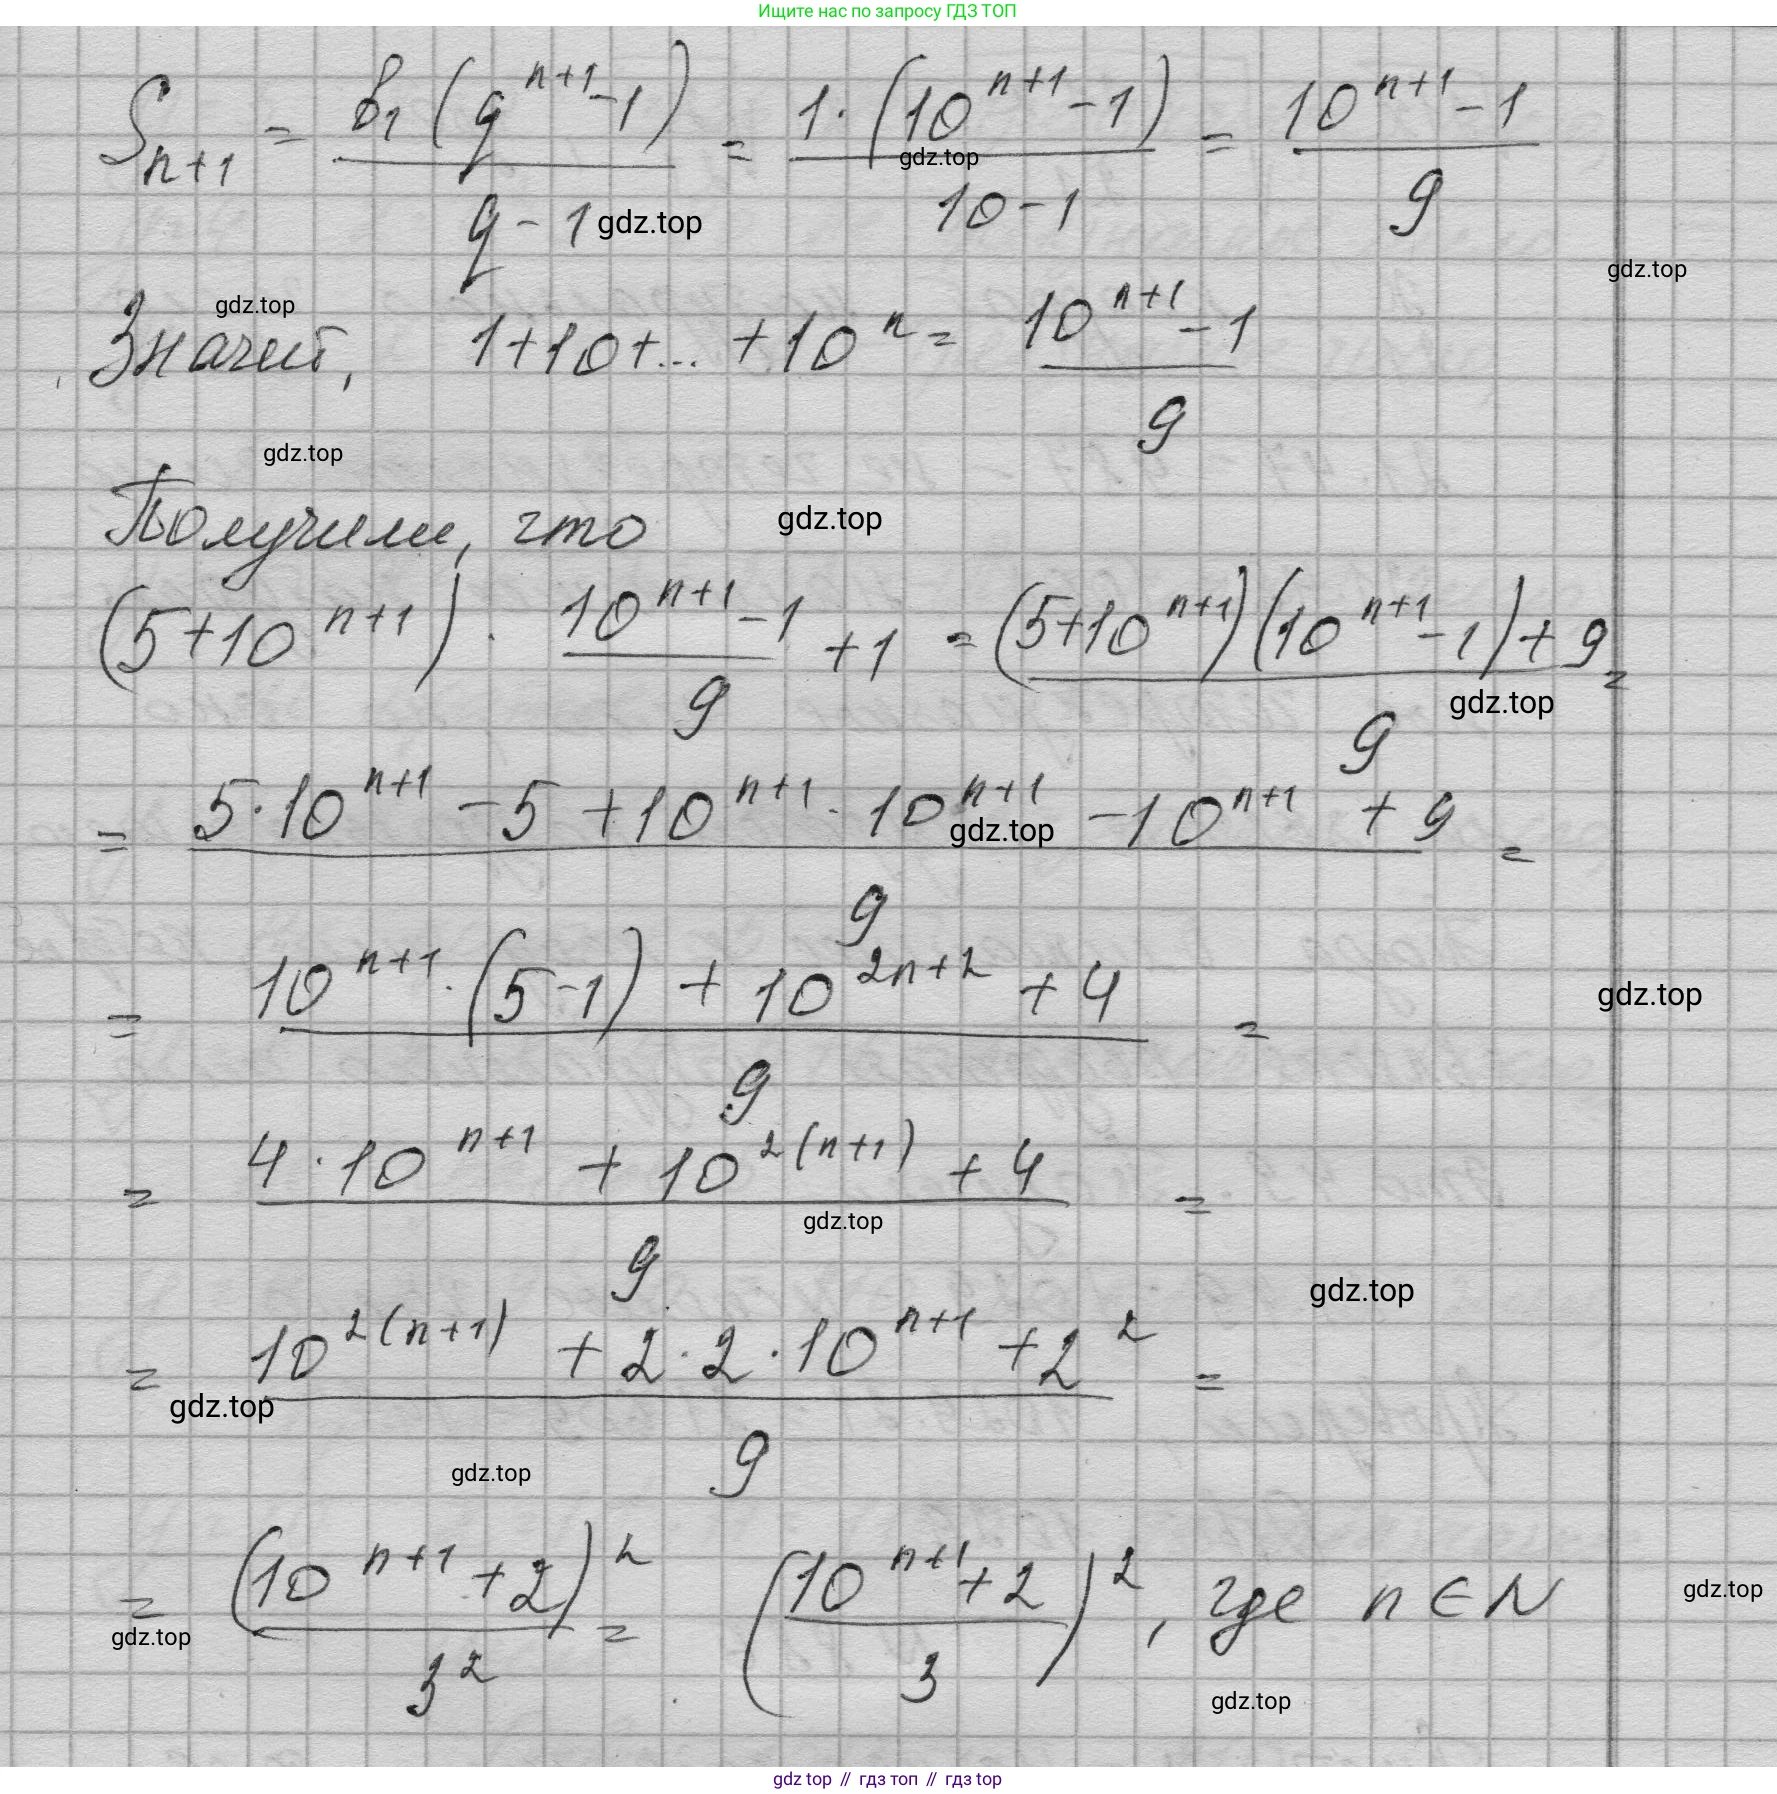 Ищите нас по запросу ГДЗ ТОП
S_{n+1} = \frac{b_1(q^{n+1}-1)}{q-1} = \frac{1·(10^{n+1}-1)}{10-1} = \frac{10^{n+1}-1}{9}
gdz.top
gdz.top
gdz.top
gdz.top
Значит, 1+10+...+10^n = \frac{10^{n+1}-1}{9}
gdz.top
Получили, что
gdz.top
(5+10^{n+1}) · \frac{10^{n+1}-1}{9} +1 = \frac{(5+10^{n+1})(10^{n+1}-1)+9}{9} =
gdz.top
= \frac{5·10^{n+1} -5 +10^{n+1}·10^{n+1} -10^{n+1} +9}{9} =
gdz.top
= \frac{10^{n+1}·(5-1) + 10^{2n+2} +4}{9} =
gdz.top
= \frac{4·10^{n+1} + 10^{2(n+1)} +4}{9} =
gdz.top
gdz.top
= \frac{10^{2(n+1)} +2·2·10^{n+1} +2^2}{9} =
gdz.top
gdz.top
= \frac{(10^{n+1}+2)^2}{3^2} = (\frac{10^{n+1}+2}{3})^2, где n∈N
gdz.top
gdz.top
gdz.top
gdz top // гдз топ // гдз top